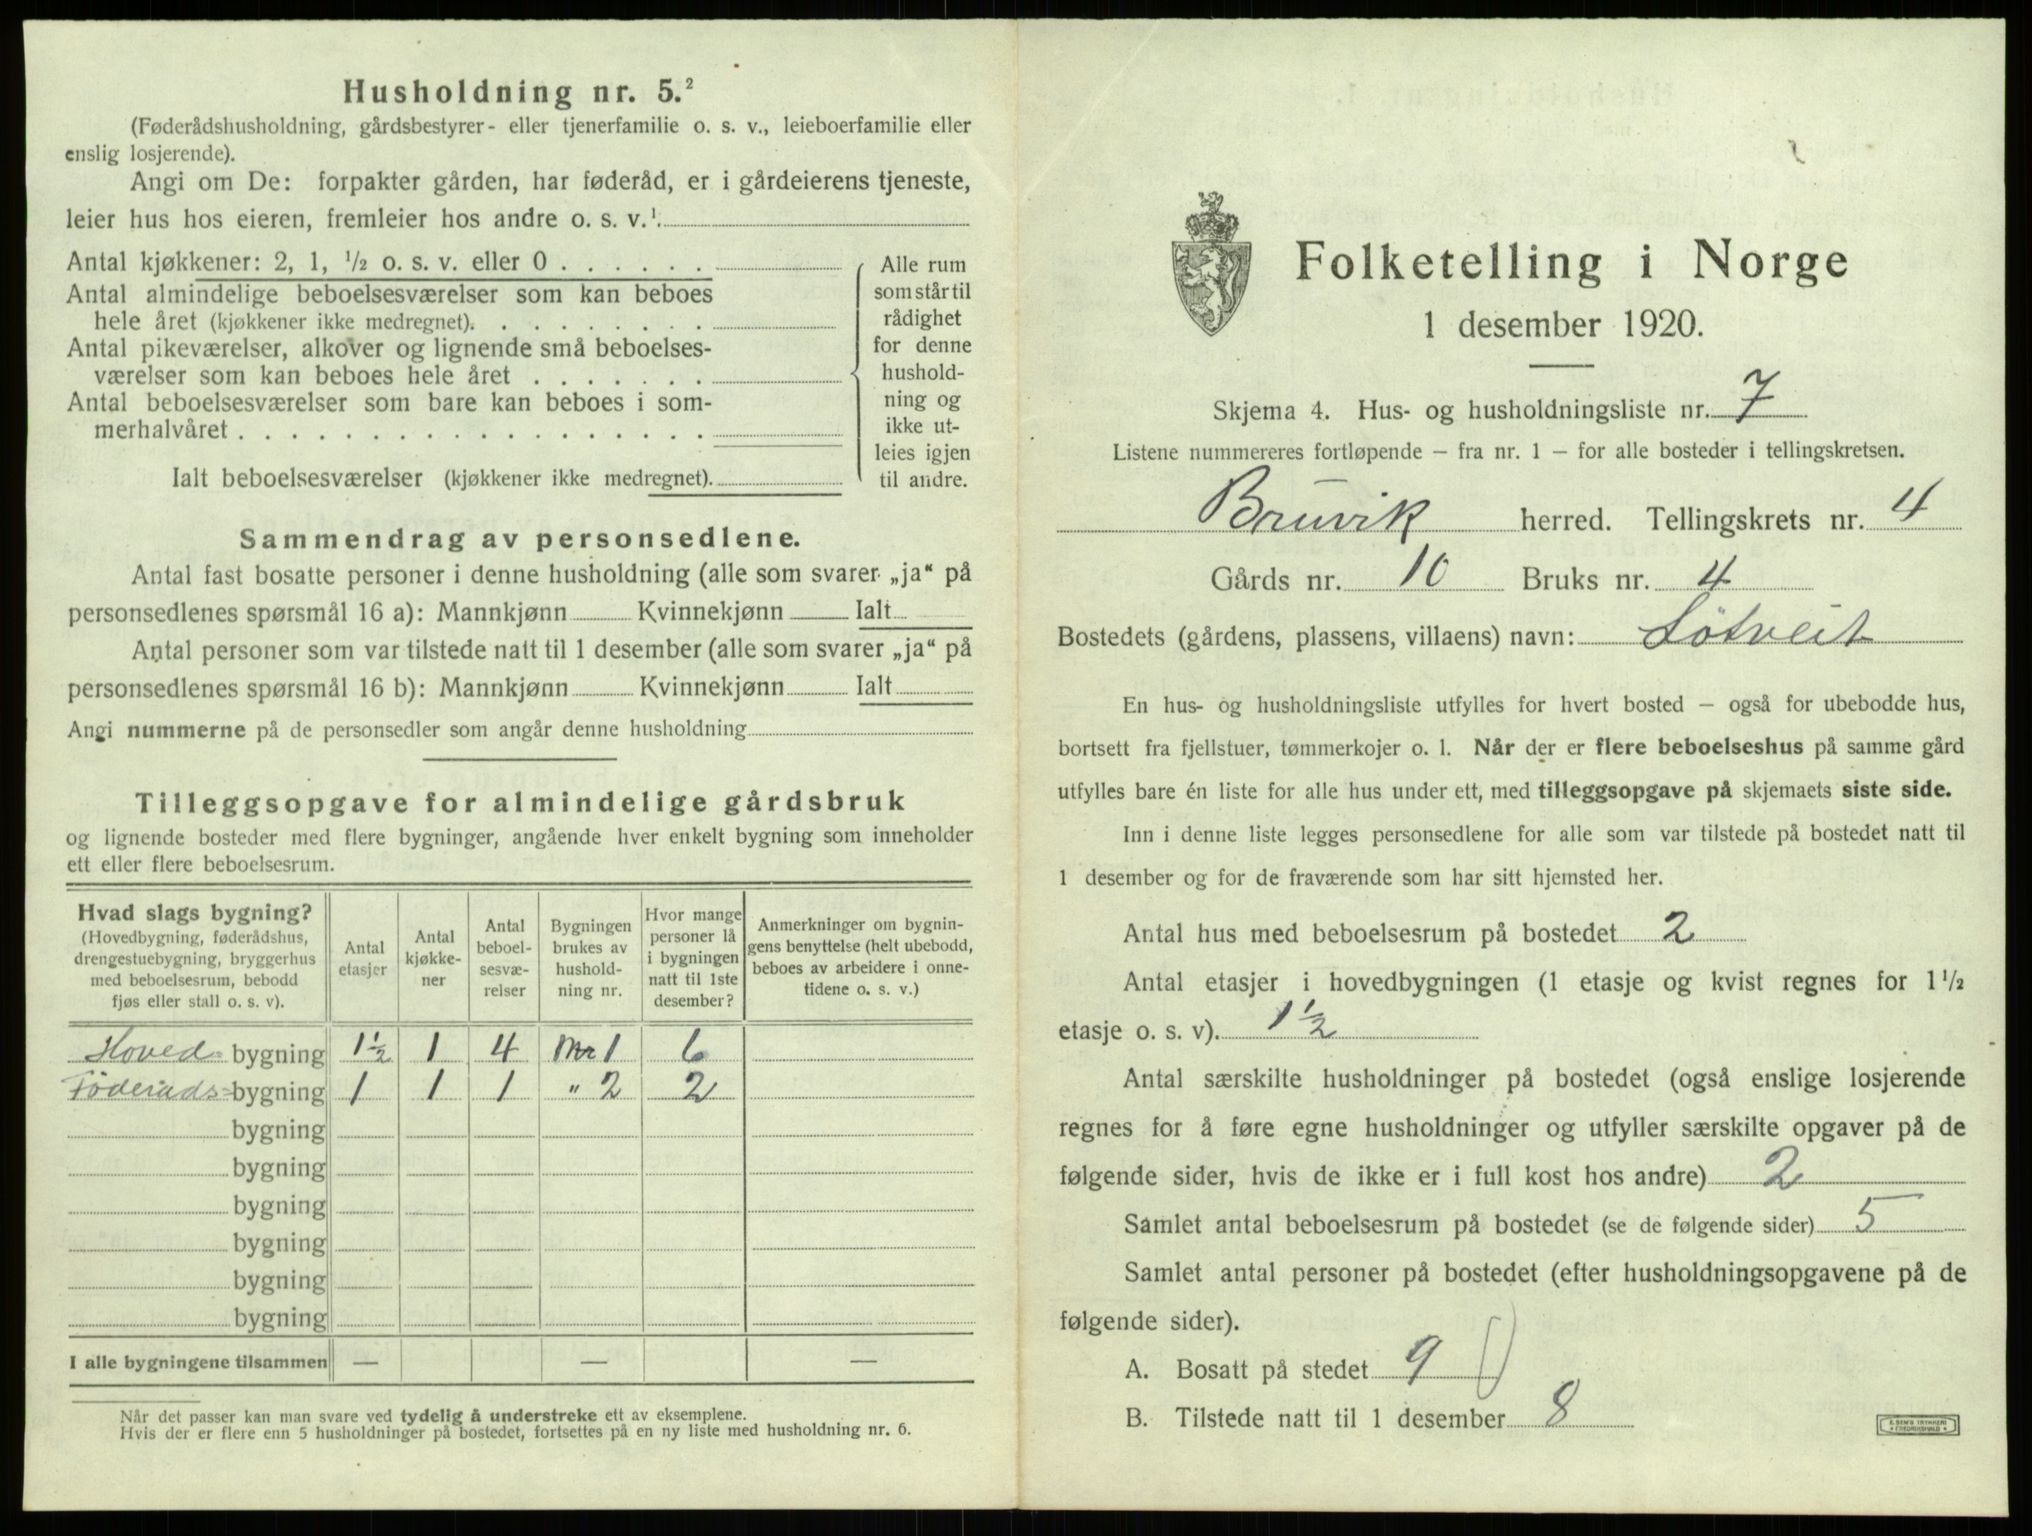 Husholdning nr. 5.²
(Føderådshusholdning, gårdsbestyrer- eller tjenerfamilie o. s. v., leieboerfamilie eller
enslig losjerende).
Angi om De: forpakter gården, har føderåd, er i gårdeierens tjeneste,
leier hus hos eieren, fremleier hos andre o. s. v.¹
Antal kjøkkener: 2, 1, ½ o. s. v. eller 0 . . . . . .
Antal almindelige beboelsesværelser som kan beboes
hele året (kjøkkener ikke medregnet). . . . . . . . .
Antal pikeværelser, alkover og lignende små beboelses-
værelser som kan beboes hele året . . . . . . .
Antal beboelsesværelser som bare kan beboes i som-
merhalvåret . . . . . . . . . . . . . . . . . .
Ialt beboelsesværelser (kjøkkener ikke medregnet).
Alle rum
som står til
rådighet
for denne
hushold-
ning og
ikke ut-
leies igjen
til andre.
Sammendrag av personsedlene.
Antal fast bosatte personer i denne husholdning (alle som svarer „ja“ på
personsedlenes spørsmål 16 a): Mannkjønn Kvinnekjønn Ialt
Antal personer som var tilstede natt til 1 desember (alle som svarer „ja“ på
personsedlenes spørsmål 16 b): Mannkjønn Kvinnekjønn Ialt
Angi nummerne på de personsedler som angår denne husholdning
Tilleggsopgave for almindelige gårdsbruk
og lignende bosteder med flere bygninger, angående hver enkelt bygning som inneholder
ett eller flere beboelsesrum.
Hvad slags bygning?
(Hovedbygning, føderådshus,
drengestuebygning, bryggerhus
med beboelsesrum, bebodd
fjøs eller stall o. s. v).
Antal
etasjer
Antal
kjøkke-
ner
Antal
beboel-
sesvæ-
relser
Bygningen
brukes av
hushold-
ning nr.
Hvor mange
personer lå
i bygningen
natt til 1ste
desember?
Anmerkninger om bygnin-
gens benyttelse (helt ubebodd,
beboes av arbeidere i onne-
tidene o. s. v.)
Hoved- bygning 1½ 1 4 Nr 1 6
Føderåds- bygning 1 1 1 " 2 2
bygning
bygning
bygning
bygning
bygning
bygning
I alle bygningene tilsammen — — —
Når det passer kan man svare ved tydelig å understreke ett av eksemplene.
Hvis der er flere enn 5 husholdninger på bostedet, fortsettes på en ny liste med husholdning nr. 6.
Folketelling i Norge
1 desember 1920.
Skjema 4. Hus- og husholdningsliste nr. 7
Listene nummereres fortløpende – fra nr. 1 – for alle bosteder i tellingskretsen.
Bruvik herred. Tellingskrets nr. 4
Gårds nr. 10 Bruks nr. 4
Bostedets (gårdens, plassens, villaens) navn: Søtveit
En hus- og husholdningsliste utfylles for hvert bosted – også for ubebodde hus,
bortsett fra fjellstuer, tømmerkojer o. l. Når der er flere beboelseshus på samme gård
utfylles bare én liste for alle hus under ett, med tilleggsopgave på skjemaets siste side.
Inn i denne liste legges personsedlene for alle som var tilstede på bostedet natt til
1 desember og for de fraværende som har sitt hjemsted her.
Antal hus med beboelsesrum på bostedet 2
Antal etasjer i hovedbygningen (1 etasje og kvist regnes for 1½
etasje o. s. v). 1½
Antal særskilte husholdninger på bostedet (også enslige losjerende
regnes for å føre egne husholdninger og utfyller særskilte opgaver på de
følgende sider, hvis de ikke er i full kost hos andre) 2
Samlet antal beboelsesrum på bostedet (se de følgende sider) 5
Samlet antal personer på bostedet (efter husholdningsopgavene på de
følgende sider).
A. Bosatt på stedet 9
B. Tilstede natt til 1 desember 8